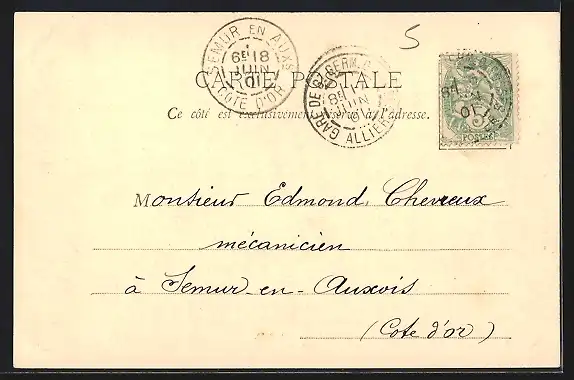 5
SEMUR EN AUXS
6E 18
JUIN
01
COTE D'OR
GARE DE ST GERM.
8E 11
JUIN
01
ALLIER
CARTE POSTALE
Ce côté est exclusivement réservé à l'adresse.
POSTES
Monsieur Edmond Chevreux
mécanicien
à Semur-en-Auxois
(Cote d'or)